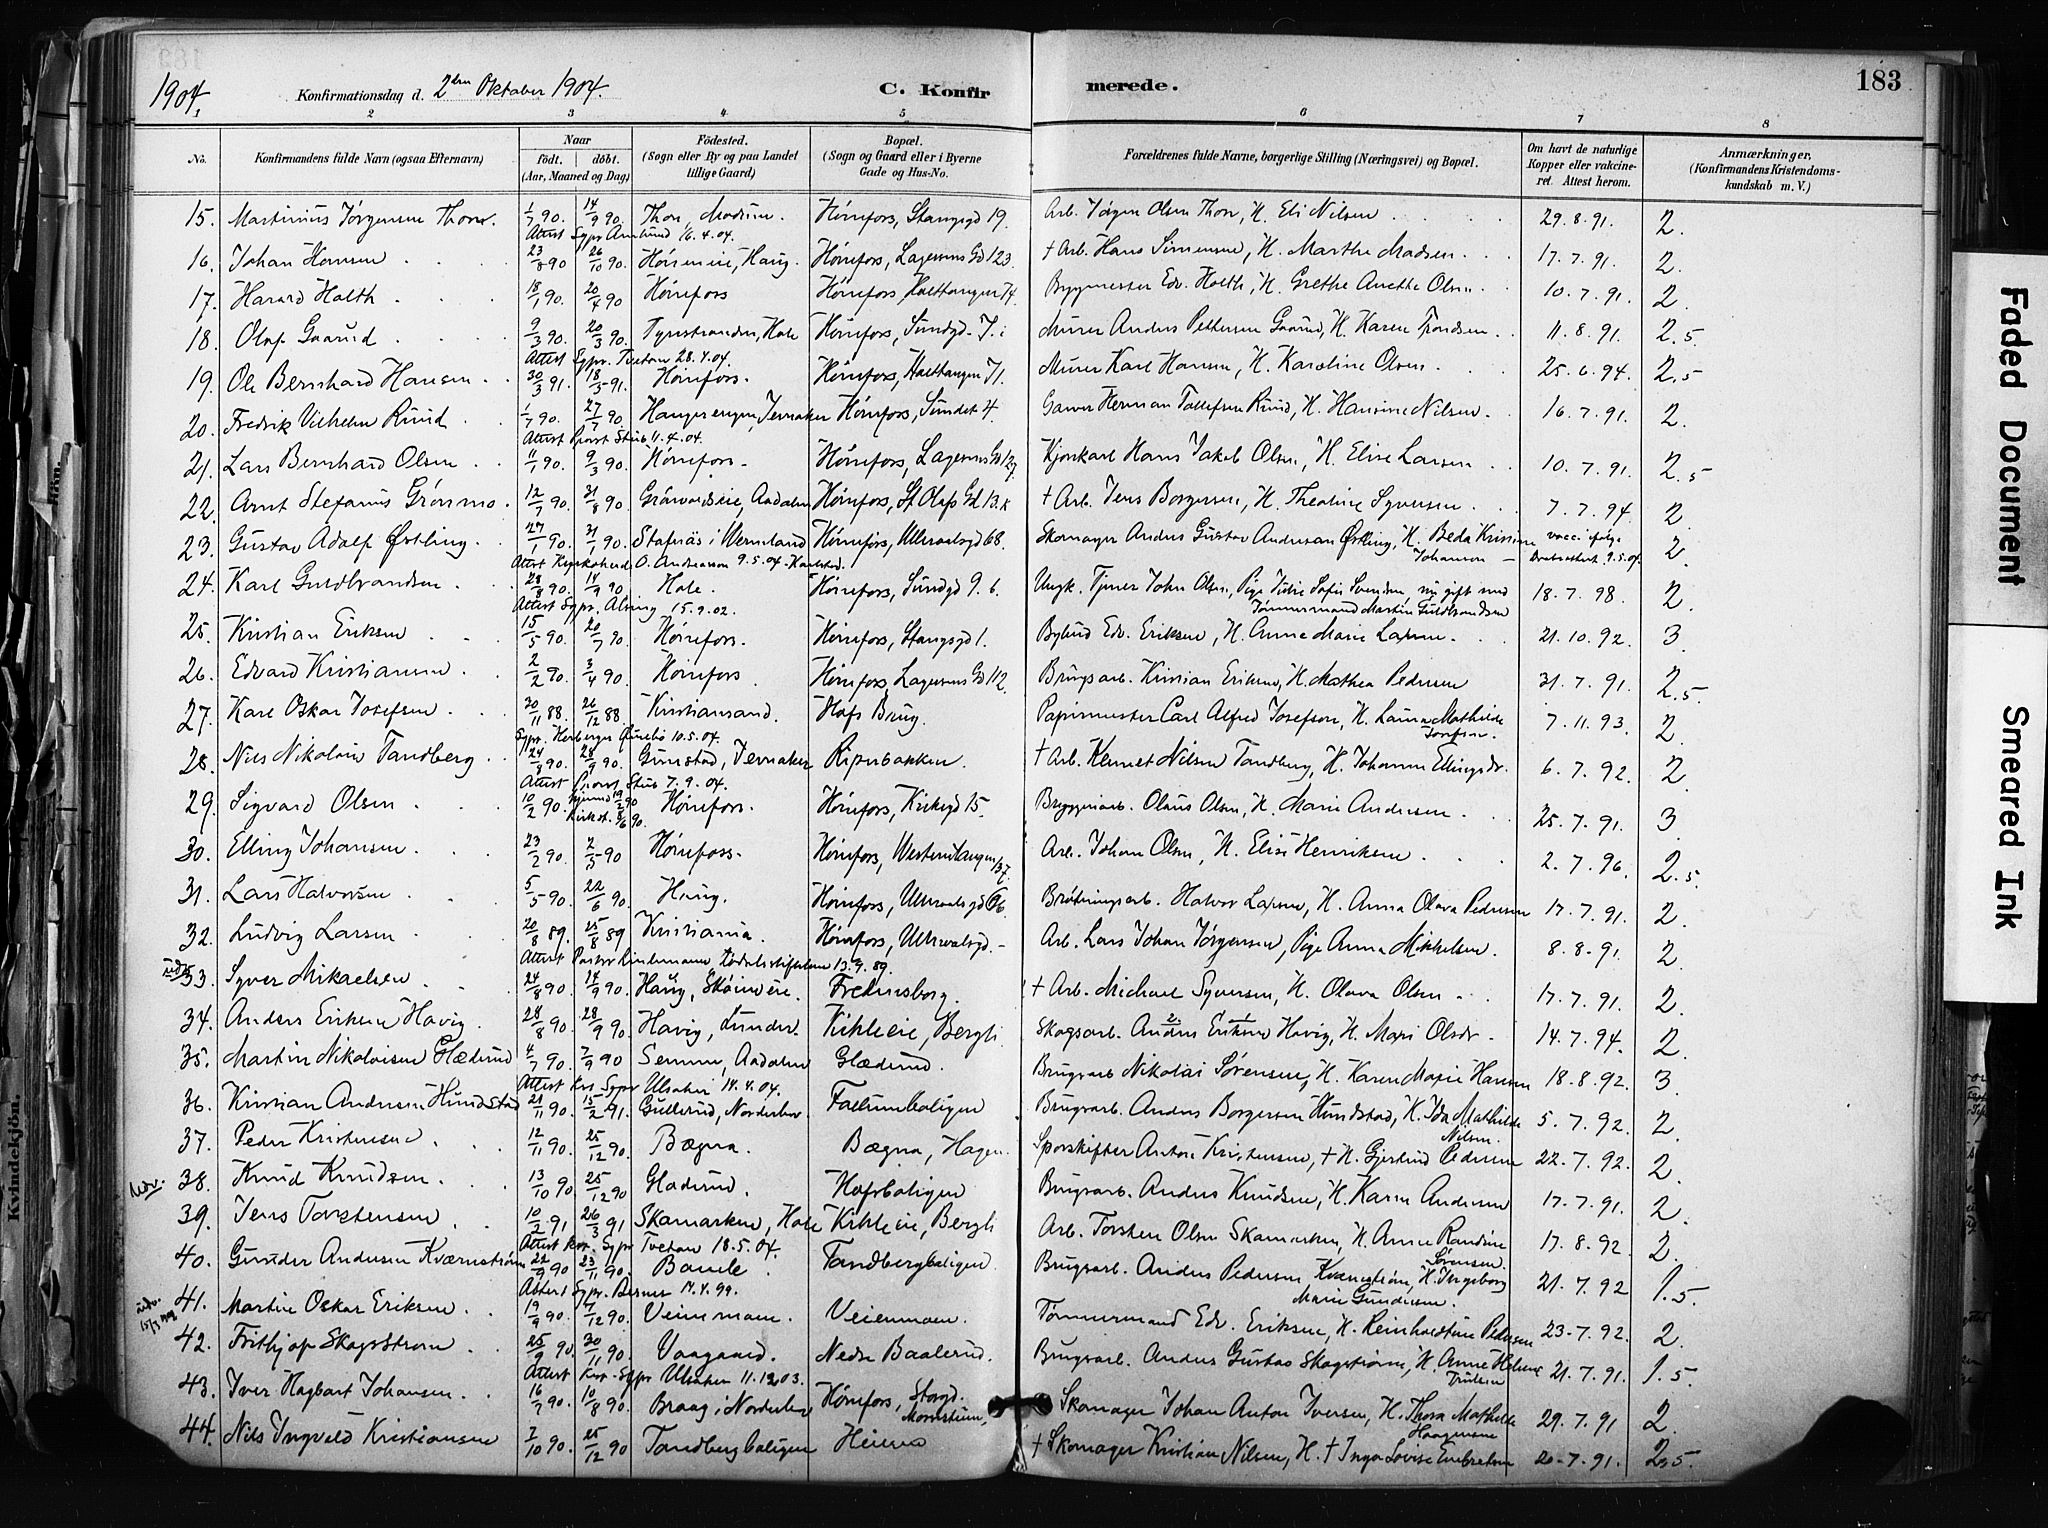 183
1904.
Konfirmationsdag d. 2den Oktober 1904.
C. Konfir merede.
1 2 3 4 5 6 7 8
No.
Konfirmandens fulde Navn (ogsaa Efternavn)
Naar
födt. döbt.
(Aar, Maaned og Dag)
Födested.
(Sogn eller By og paa Landet
tillige Gaard)
Bopæl.
(Sogn og Gaard eller i Byerne
Gade og Hus-No.
Forældrenes fulde Navne, borgerlige Stilling (Næringsvei) og Bopæl.
Om havt de naturlige
Kopper eller vakcine-
ret. Attest herom.
Anmærkninger,
(Konfirmandens Kristendoms-
kundskab m. V.)
15. Martinius Jörgensen Thon. 1/7 90. 14/9 90. Thon, Modum. Hönefos, Stangsgd 19. Arb. Jörgen Olsen Thon, H. Eli Nilsen 29.8.91. 2.
Attest Sgpr 16.4.04.
16. Johan Hansen 23/8 90 26/10 90. Höneneie, Haug. Hönefos, Lagesens Gd 123. † Arb. Hans Simensen, H. Marthe Madsen 17.7.91. 2.
17. Harald Holth 18/1 90. 20/4 90 Hönefos Hönefos, Holttangen 74 Bygmester Edv. Holth, H. Grethe Anethe Olsen 10.7.91. 2.
18. Olaf Gaarud 9/3 90. 20/3 90. Tyristranden, Hole Hönefos, Sundgd. 7.i Murer Anders Pettersen Gaarud, H. Karen Trondsen 11.8.91. 2.5
Attest Sgpr. Tvetan 28.4.04.
19. Ole Bernhard Hansen 30/3 91. 18/5 91. Hönefos. Hönefos, Holttangen 71. Murer Karl Hansen, H. Karoline Olsen 25.6.94. 2.5
20. Fredrik Vilhelm Ruud 1/7 90. 27/7 90. Jevnaker Hönefos, Sundet 4. Garver Herman Tollefsen Ruud, H. Hansine Nilsen 16.7.91. 2.
Attest Provst Stub 11.4.04.
21. Lars Bernhard Olsen 11/1 90. 9/3 90. Hönefos Hönefos, Lagesens Gd 127. Kjörekarl Hans Jakob Olsen, H. Elise Larsen 10.7.91. 2.5
22. Arnt Stefanus Grönmo 12/7 90. 31/8 90. Aadalen Hönefos, St Olafs Gd 13.k † Arb. Jens Borgersen, H. Theoline Syversen 7.7.94. 2.
23. Gustav Adolf Østling 27/1 90. 31/1 90. Stafnäs i Wermland Hönefos, Ullevoldsgd 68. Skomager Anders Gustav Anderson Østling, H. Beda Kristine vacc. ifölge 2.
Attest Kyrkoherd. O. Andreasson 9.5.04. Karlstad. Johanson 9.5.04.
24. Karl Guldbrandsen 28/8 90. 14/9 90. Hole. Hönefos, Sundgd 9.6. Ungk. Tjener John Olsen, Pige Julie Sofie Svendsen, nu gift med 18.7.98. 2.
Attest Sgpr. Alsing 15.9.02. Tömmermand Martin Guldbrandsen
25. Kristian Eriksen 15/5 90. 20/7 90. Hönefos. Hönefos, Stangsgd 1. Bybud Edv. Eriksen, H. Anne Marie Larsen 21.10.92. 3.
26. Edvard Kristiansen 2/2 90. 3/4 90. Hönefos Hönefos, Lagesens Gd 112. Brugsarb. Kristian Eriksen, H. Mathea Pedersen 31.7.91. 2.5
27. Karl Oskar Josefsen 20/11 88. 26/12 88. Kristiansand. Hofs Brug. Papirmester Carl Alfred Josefson, H. Laura Mathilde 7.11.93. 2.
Sgpr. 10.5.04. Josefson.
28. Nils Nikolai Tandberg 24/8 90. 28/9 90. Grinistad, Jevnaker Ripsbakken. † Arb. Kennet Nilsen Tandberg, H. Johanne Ellingsdr. 6.7.92. 2.
Attest Provst Stub 7.9.04.
29. Sigvard Olsen 10/2 90. Hjemd 19/2 90 Kirkst. 8/6 90. Hönefos. Hönefos, Kirkegd 15. Bryggeriarb. Olaus Olsen, H. Marie Andersen 25.7.91. 3
30. Elling Johansen 23/2 90. 2/5 90 Hönefoss. Hönefos, Westerntangen 37. Arb. Johan Olsen, H. Elise Henriksen 2.7.96. 2.5.
31. Lars Halvorsen 5/5 90. 22/6 90. Haug. Hönefos, Ullevoldsgd 66. Brötningsarb. Halvor Larsen, H. Anna Olava Pedersen 17.7.91. 2.
32. Ludvig Larsen 20/8 89. 25/8 89 Kristiania. Hönefos, Ullevoldsgd. Arb. Lars Johan Jörgensen, Pige Anna Mikkelsen. 8.8.91. 2.
Attest Pastor Födselsstiftelsen 13.9.89.
33. Syver Mikaelsen 24/8 90. 14/9 90. Haug, Fredensborg. † Arb. Michael Syversen, H. Olava Olsen 17.7.91. 2.
34. Anders Eriksen Havig. 28/8 90. 28/9 90. Havig, Lunder. Kihleeie, Bergli. Skogsarb. Anders Eriksen Havig, H. Mari Olsdr. 14.7.94. 2.
35. Martin Nikolaisen Glæderud 4/7 90. 7/9 90 Semmen, Aadalen Glæderud. Brugsarb. Nikolai Sörensen, H. Karen Marie Hansen 18.8.92. 3
Attest kst. Sgpr Ulsaker 14.4.04.
36. Kristian Andersen Hundstad 21/11 90. 15/2 91. Gullerud, Norderhov Follumboligen Brugsarb. Anders Borgersen Hundstad, H. Ida Mathilde 5.7.92. 2.
Nilsen.
37. Peder Kristensen 12/11 90. 25/12 90. Bægna. Bægna, Hagen. Sporskifter Anton Kristensen, † H. Gjertrud Pedersen 22.7.92. 2.
udv. 38. Knud Knudsen 13/10 90. 25/12 90 Glæderud. Hofsboligen Brugsarb. Anders Knudsen, H. Karen Andersen 17.7.91. 2.
39. Jens Torstensen 10/2 91 26/3 91 Skamarken, Hole Kihleeie, Bergli Arb. Torsten Olsen Skamarken, H. Anne Randine 17.8.92. 2.
Attest kst. Sgpr Tvetan 18.5.04. Sörensen.
40. Gunder Andersen Kværnström 22/9 90 23/11 90. Bamle. Tandbergboligen. Brugsarb. Anders Pedersen Kværnström, H. Ingeborg 21.7.92 1.5.
Attest Sgpr. 17.4.99. Marie Gundersen.
udv. 41. Martin Oskar Eriksen 19/9 90. 7/12 90. Veienmoen. Veienmoen. Tömmermand Edv. Eriksen, H. Reinholdtine Pedersen 23.7.92. 2.
42. Frithjof Skogström 25/9 90. 30/11 90. Vaagaard. Nedre Baalerud. Brugsarb. Anders Gustav Skogström, H. Anne Helene 21.7.91. 1.5.
Attest kst. Sgpr Ulsaker 11.12.03. Trulsen
43. Iver Hagbart Johansen. 16/7 90. 10/8 90. Braag i Norderhov Hönefos, Storgd. Skomager Johan Anton Iversen, H. Thora Mathilde 29.7.91 2.
Haagensen
44. Nils Ingvald Kristiansen 7/10 90. 25/12 90 Tandbergboligen Heiens † Skomager Kristian Nilsen, H. † Inga Lovise Enebretsen 20.7.91. 2.5.
Kvindekjön.
Faded Document
Smeared Ink